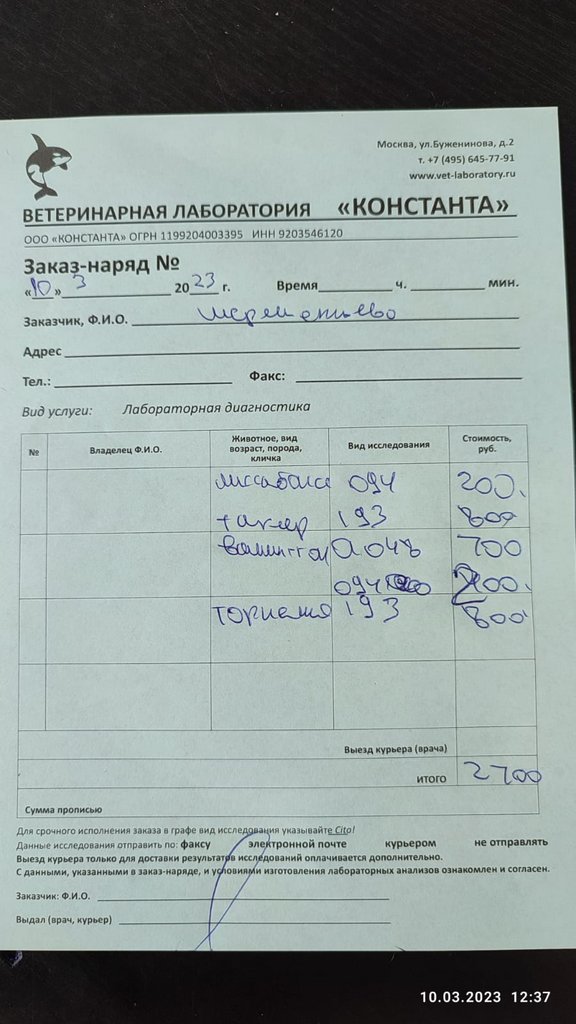 Москва, ул.Буженинова, д.2
т. +7 (495) 645-77-91
www.vet-laboratory.ru
ВЕТЕРИНАРНАЯ ЛАБОРАТОРИЯ «КОНСТАНТА»
ООО «КОНСТАНТА» ОГРН 1199204003395 ИНН 9203546120
Заказ-наряд №
«10» 3 2023 г. Время ч. мин.
Заказчик, Ф.И.О.
Адрес
Тел.: Факс:
Вид услуги: Лабораторная диагностика
№ Владелец Ф.И.О. Животное, вид возраст, порода, кличка Вид исследования Стоимость, руб.
094 200.
193 800
а048 700
094 200.
193 800
Выезд курьера (врача)
ИТОГО 2700
Сумма прописью
Для срочного исполнения заказа в графе вид исследования указывайте Cito!
Данные исследования отправить по: факсу электронной почте курьером не отправлять
Выезд курьера только для доставки результатов исследований оплачивается дополнительно.
С данными, указанными в заказ-наряде, и условиями изготовления лабораторных анализов ознакомлен и согласен.
Заказчик: Ф.И.О.
Выдал (врач, курьер)
10.03.2023 12:37